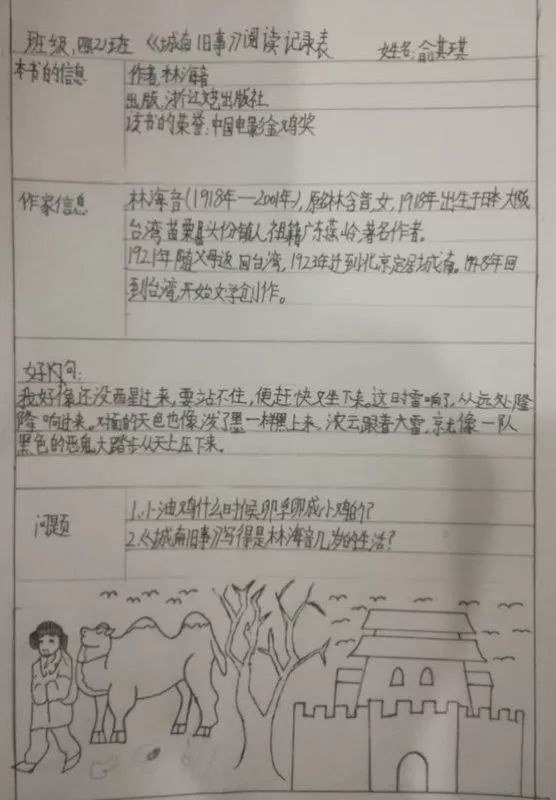 班级:四(2)班 《城南旧事》阅读记录表 姓名:俞其琪
本书的信息
作者:林海音
出版:浙江文艺出版社
该书的荣誉:中国电影金鸡奖
作家信息
林海音(1918年—2001年),原名林含音,女,1918年出生于日本大阪
台湾苗栗县头份镇人,祖籍广东蕉岭,著名作者。
1921年随父母返回台湾,1923年迁到北京定居城南。1948年回
到台湾,开始文学创作。
好句:
我好像还没西星过来,要站不住,便赶快又坐下来。这时雷响了,从远处隆
隆响过来。对面的天色也像泼了墨一样黑上来,浓云跟着大雷,就像一队
黑色的恶鬼大踏步从天上压下来。
问题
1.小油鸡什么时候卵孚卵成小鸡的?
2.《城南旧事》写得是林海音几岁的生活?